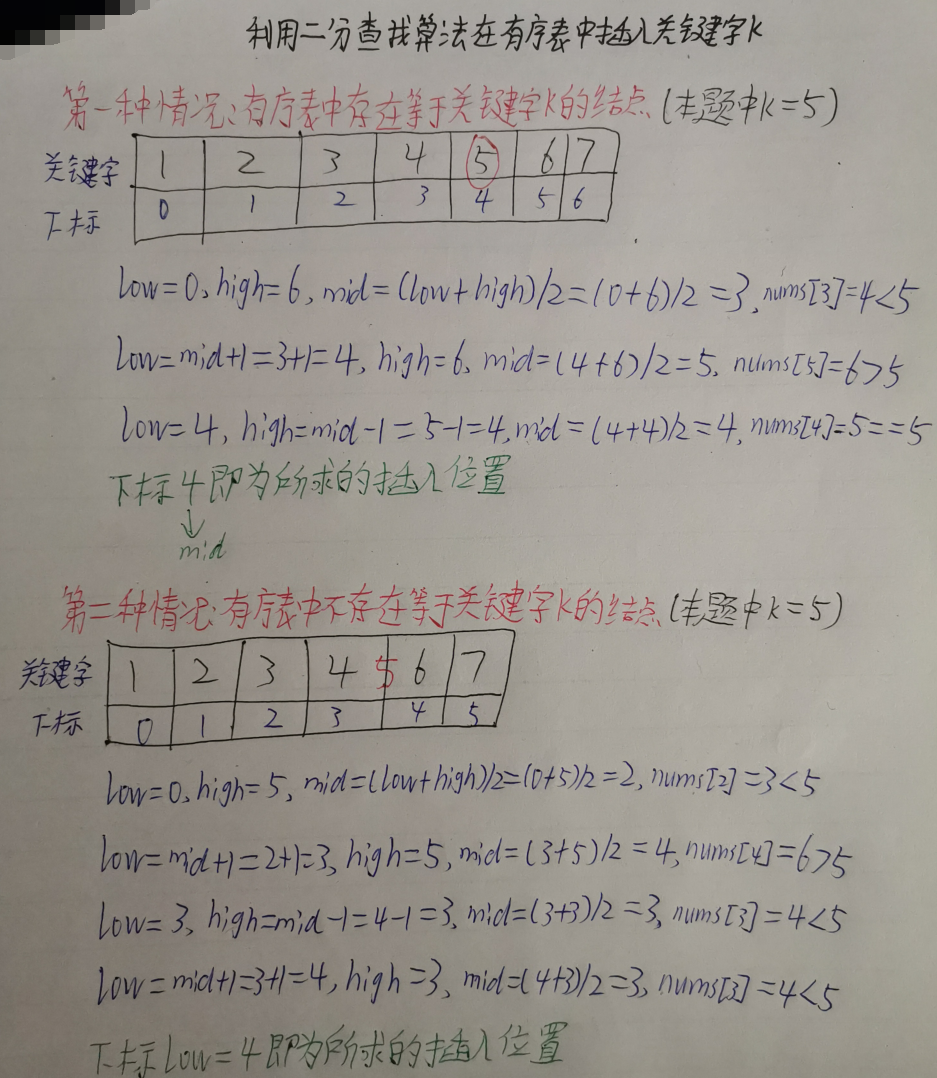 利用二分查找算法在有序表中插入关键字K
第一种情况:有序表中存在等于关键字K的结点(本题中K=5)
关键字 1 2 3 4 5 6 7
下标 0 1 2 3 4 5 6
low=0,high=6,mid=(low+high)/2=(0+6)/2=3,nums[3]=4<5
low=mid+1=3+1=4,high=6,mid=(4+6)/2=5,nums[5]=6>5
low=4,high=mid-1=5-1=4,mid=(4+4)/2=4,nums[4]=5==5
下标4即为所求的插入位置
↓
mid
第二种情况:有序表中不存在等于关键字K的结点(本题中K=5)
关键字 1 2 3 4 5 6 7
下标 0 1 2 3 4 5
low=0,high=5,mid=(low+high)/2=(0+5)/2=2,nums[2]=3<5
low=mid+1=2+1=3,high=5,mid=(3+5)/2=4,nums[4]=6>5
low=3,high=mid-1=4-1=3,mid=(3+3)/2=3,nums[3]=4<5
low=mid+1=3+1=4,high=3,mid=(4+3)/2=3,nums[3]=4<5
下标low=4即为所求的插入位置